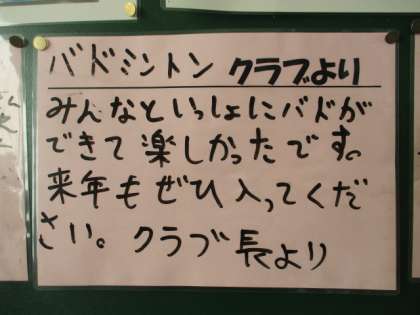 バドミントン クラブより
みんなといっしょにバドが
できて楽しかったです。
来年もぜひ入ってくだ
さい。クラブ長より